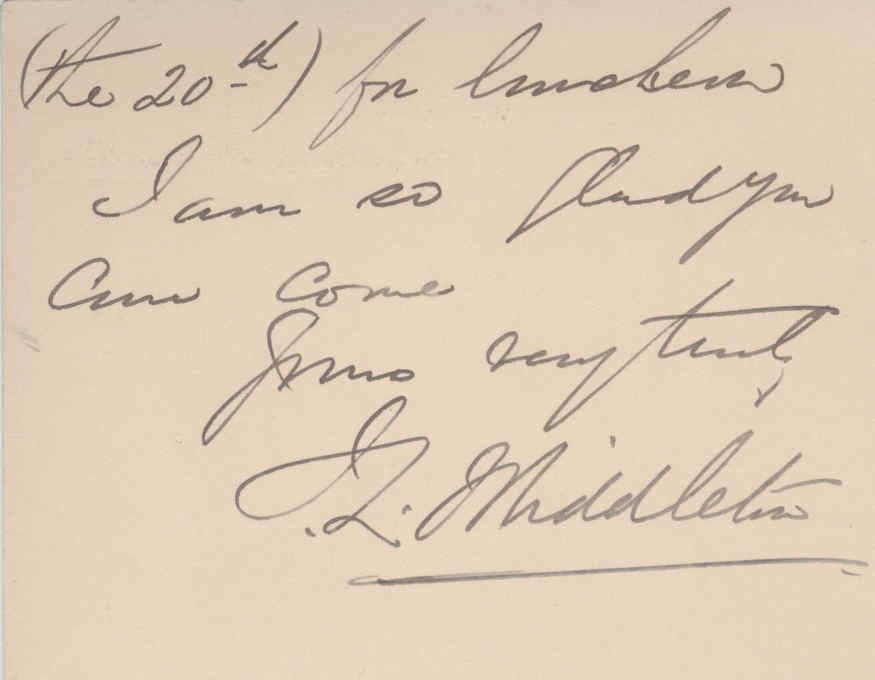 (the 20th) for luncheon
I am so glad you
can come
Yours very truly,
L. Middleton